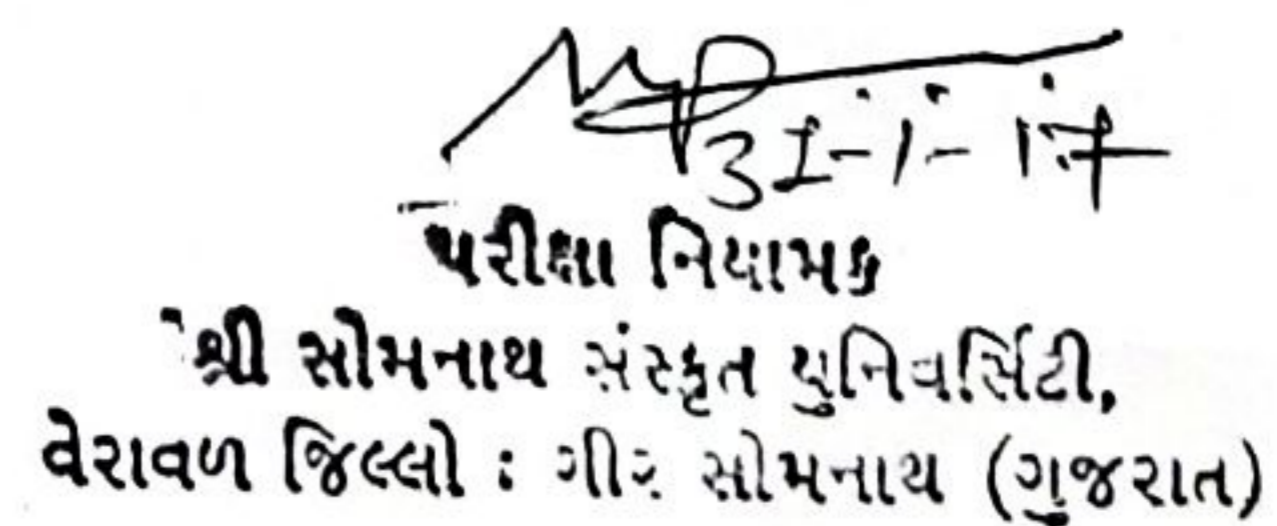 31-1-17
પરીક્ષા નિયામક
શ્રી સોમનાથ સંસ્કૃત યુનિવર્સિટી,
વેરાવળ જિલ્લો : ગીર સોમનાથ (ગુજરાત)